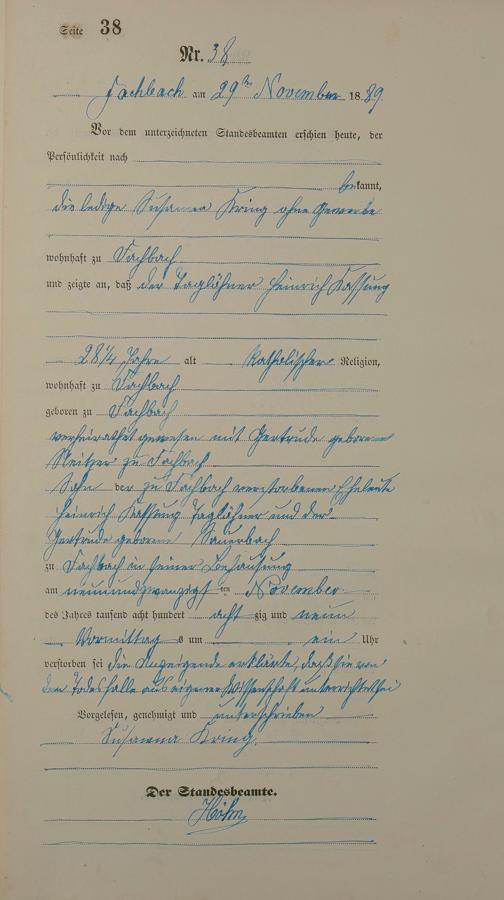 Seite 38
Nr. 38
Fachbach am 29ten November 1889
Vor dem unterzeichneten Standesbeamten erschien heute, der
Persönlichkeit nach
bekannt,
die ledige Susanna Kring ohne Gewerbe
wohnhaft zu Fachbach
und zeigte an, daß der Taglöhner Heinrich
28 1/4 Jahre alt katholischer Religion,
wohnhaft zu Fachbach
geboren zu Fachbach
verheirathet gewesen mit Gertrude geborene
zu Fachbach
Sohn der zu Fachbach verstorbenen Eheleute
Heinrich Taglöhner und der
Gertrude geborene Sauerbach
zu Fachbach in seiner Behausung
am neunundzwanzigsten November
des Jahres tausend acht hundert achtzig und neun
Vormittags um ein Uhr
verstorben sei die Anzeigende erklärte, daß sie von
dem Todesfalle aus eigener Wissenschaft unterrichtet sei
Vorgelesen, genehmigt und unterschrieben
Susanna Kring.
Der Standesbeamte.